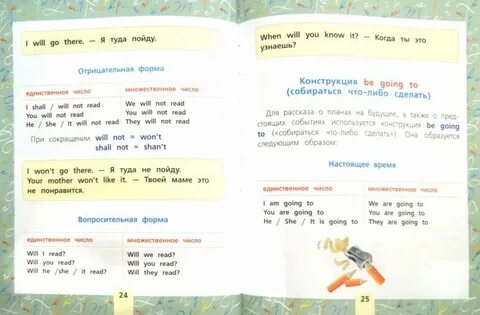 I will go there. — Я туда пойду.
Отрицательная форма
единственное число множественное число
I shall / will not read We will not read
You will not read You will not read
He / She / It will not read They will not read
При сокращении will not = won't
shall not = shan't
I won't go there. — Я туда не пойду.
Your mother won't like it. — Твоей маме это
не понравится.
Вопросительная форма
единственное число множественное число
Will I read? Will we read?
Will you read? Will you read?
Will he /she / it read? Will they read?
24
When will you know it? — Когда ты это
узнаешь?
Конструкция be going to
(собираться что-либо сделать)
Для рассказа о планах на будущее, а также о пред-
стоящих событиях используется конструкция be going
to («собираться что-либо сделать»). Она образуется
следующим образом:
Настоящее время
единственное число множественное число
I am going to We are going to
You are going to You are going to
He / She / It is going to They are going to
25